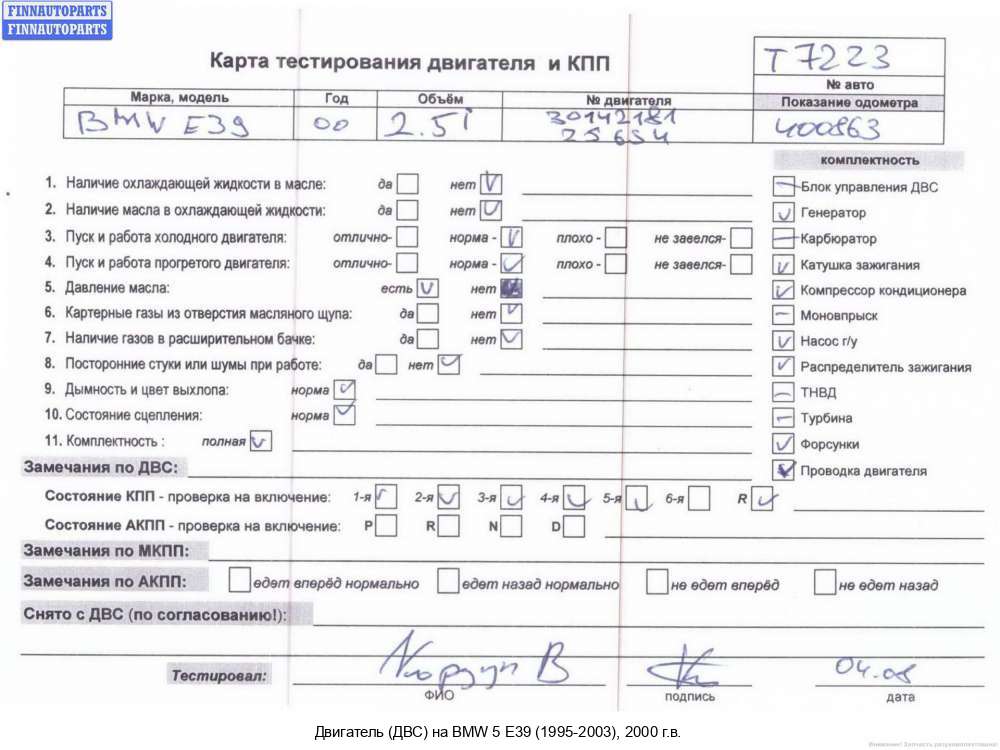 FINNAUTOPARTS
FINNAUTOPARTS
Карта тестирования двигателя и КПП
T7223
№ авто
Марка, модель Год Объём № двигателя Показание одометра
BMW E39 00 2.5i 30142181 400863
25 6S4
комплектность
1. Наличие охлаждающей жидкости в масле: да нет
Блок управления ДВС
2. Наличие масла в охлаждающей жидкости: да нет
Генератор
3. Пуск и работа холодного двигателя: отлично- норма - плохо - не завелся-
Карбюратор
4. Пуск и работа прогретого двигателя: отлично- норма - плохо - не завелся-
Катушка зажигания
5. Давление масла: есть нет
Компрессор кондиционера
6. Картерные газы из отверстия масляного щупа: да нет
Моновпрыск
7. Наличие газов в расширительном бачке: да нет
Насос г/у
8. Посторонние стуки или шумы при работе: да нет
Распределитель зажигания
9. Дымность и цвет выхлопа: норма
ТНВД
10. Состояние сцепления: норма
Турбина
11. Комплектность : полная
Форсунки
Замечания по ДВС:
Проводка двигателя
Состояние КПП - проверка на включение: 1-я 2-я 3-я 4-я 5-я 6-я R
Состояние АКПП - проверка на включение: P R N D
Замечания по МКПП:
Замечания по АКПП: едет вперёд нормально едет назад нормально не едет вперёд не едет назад
Снято с ДВС (по согласованию!):
Тестировал: В 04.08
ФИО подпись дата
Двигатель (ДВС) на BMW 5 E39 (1995-2003), 2000 г.в.